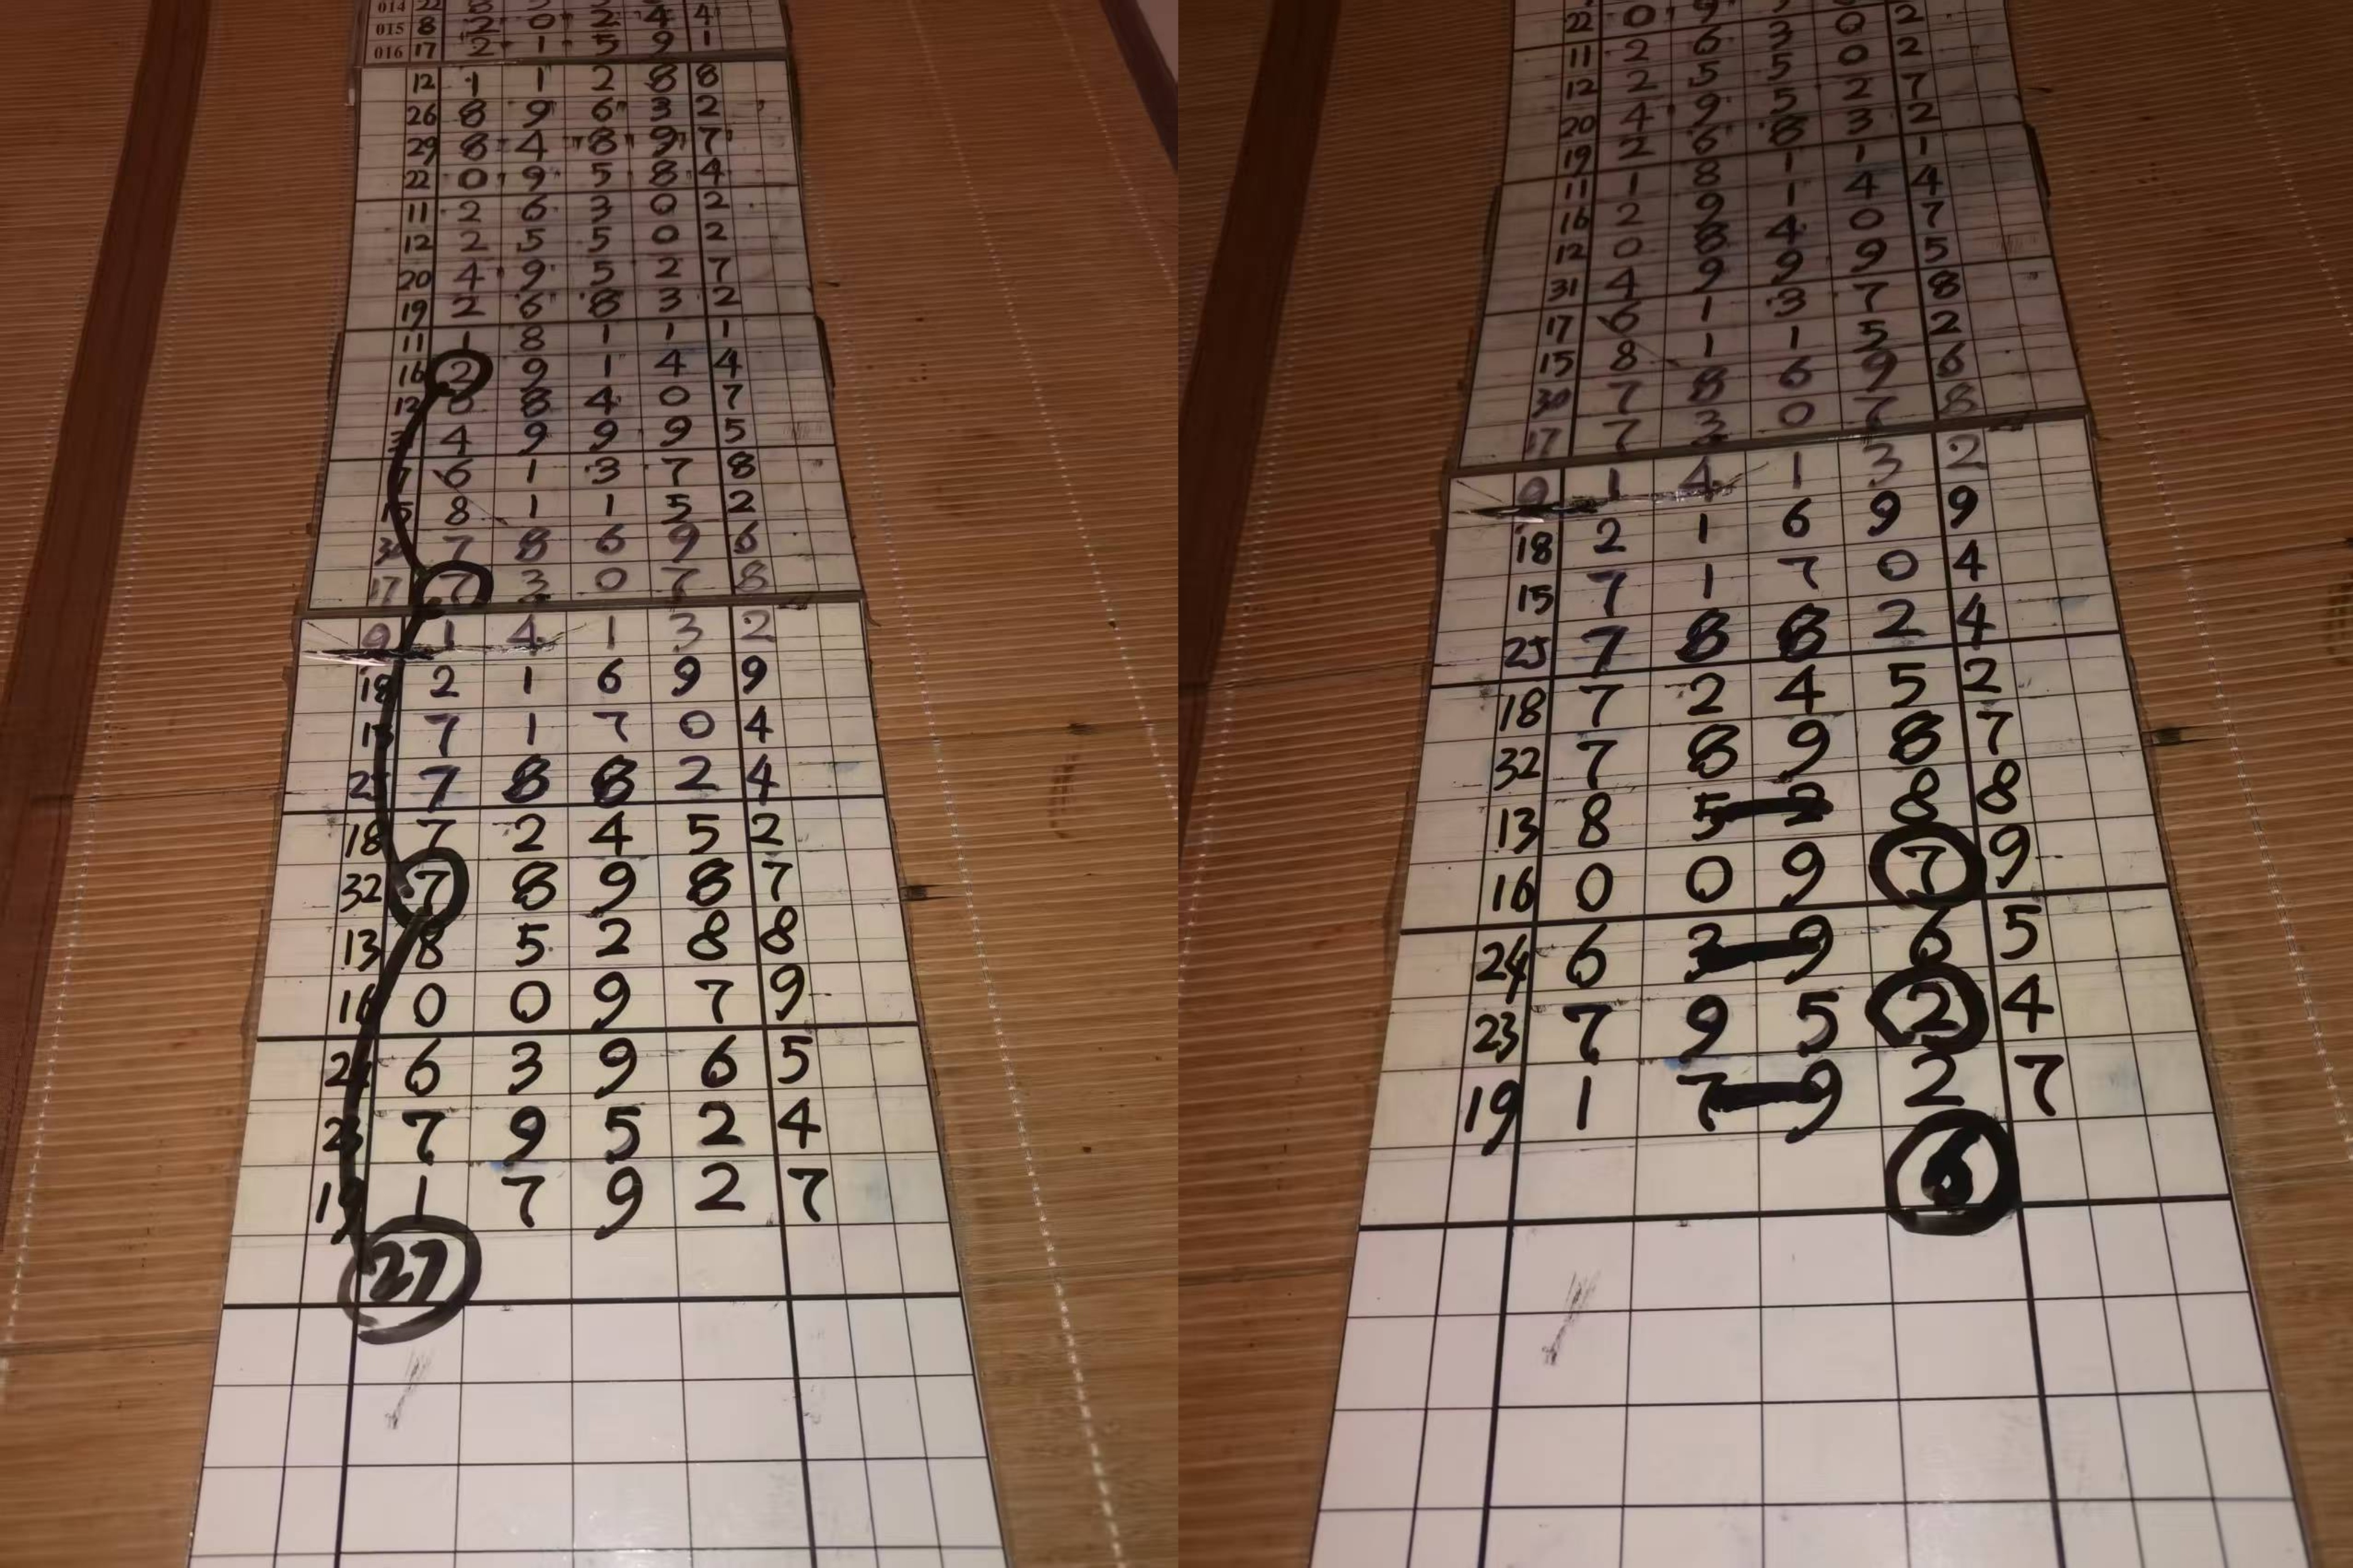 014 22
015 8 2 0 2 4 4
016 17 2 1 5 9 1
12 1 1 2 8 8
26 8 9 6 3 2
29 8 4 8 9 7
22 0 9 5 8 4
11 2 6 3 0 2
12 2 5 5 0 2
20 4 9 5 2 7
19 2 6 8 3 2
11 1 8 1 1 1
16 2 9 1 4 4
12 0 8 4 0 7
4 9 9 9 5
6 1 3 7 8
15 8 1 1 5 2
30 7 8 6 9 6
17 7 3 0 7 8
9 1 4 1 3 2
18 2 1 6 9 9
15 7 1 7 0 4
25 7 8 8 2 4
18 7 2 4 5 2
32 7 8 9 8 7
13 8 5 2 8 8
16 0 0 9 7 9
24 6 3 9 6 5
23 7 9 5 2 4
19 1 7 9 2 7
27
22 0 9 2
11 2 6 3 0 2
12 2 5 5 0 2
20 4 9 5 2 7
19 2 6 8 3 2
11 1 8 1 1 1
16 2 9 1 4 4
12 0 8 4 0 7
31 4 9 9 9 5
17 6 1 3 7 8
15 8 1 1 5 2
30 7 8 6 9 6
17 7 3 0 7 8
9 1 4 1 3 2
18 2 1 6 9 9
15 7 1 7 0 4
25 7 8 8 2 4
18 7 2 4 5 2
32 7 8 9 8 7
13 8 5 2 8 8
16 0 0 9 7 9
24 6 3 9 6 5
23 7 9 5 2 4
19 1 7 9 2 7
6